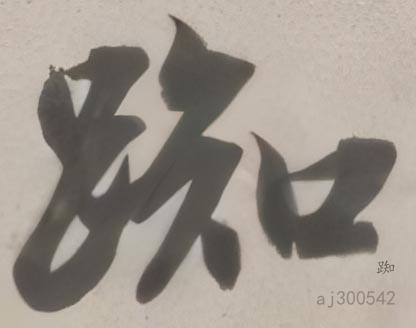 踟
踟
aj300542